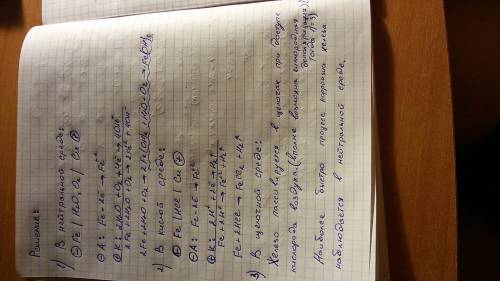 Решение:
1) В нейтральной среде:
⊖ Fe | H₂O, O₂ | Cu ⊕
⊖ A: Fe - 2ē → Fe²⁺
⊕ K: 2H₂O + O₂ + 4ē → 4OH⁻
2Fe + 2H₂O + O₂ → 2Fe²⁺ + 4OH⁻
2Fe + 2H₂O + O₂ → 2Fe(OH)₂
2) В кислой среде:
⊖ Fe | HCl | Cu ⊕
⊖ A: Fe - 2ē → Fe²⁺
⊕ K: 2H⁺ + 2ē → H₂↑
Fe + 2H⁺ → Fe²⁺ + H₂↑
Fe + 2HCl → FeCl₂ + H₂↑
3) В щелочной среде:
Железо пассивируется в щелочах при доступе
кислорода воздуха. (вполне возможна водородная
деполяризация),
тогда
Наиболее быстро процесс коррозии железа
наблюдается в нейтральной среде.